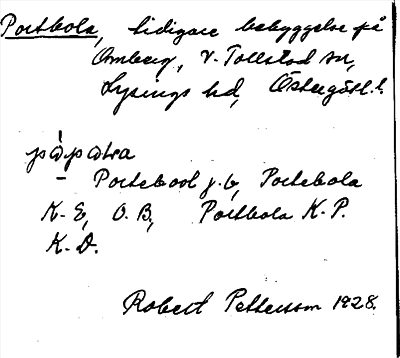 Portbola, tidigare bebyggelse på
Omberg, V. Tollstad sn,
Lysings hd, Östergötl. l.
på
— Portebool j.b, Portebola
K. E, O. B, Portbola K. P.
K. D.
Robert Pettersson 1928.